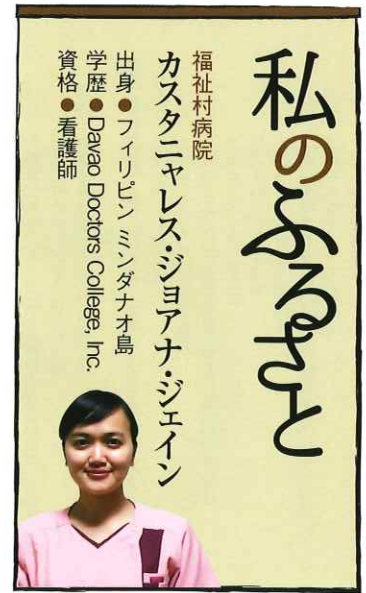 私のふるさと
福祉村病院
カスタニャレス・ジョアナ・ジェイン
出身●フィリピン ミンダナオ島
学歴●Davao Doctors College, Inc.
資格●看護師